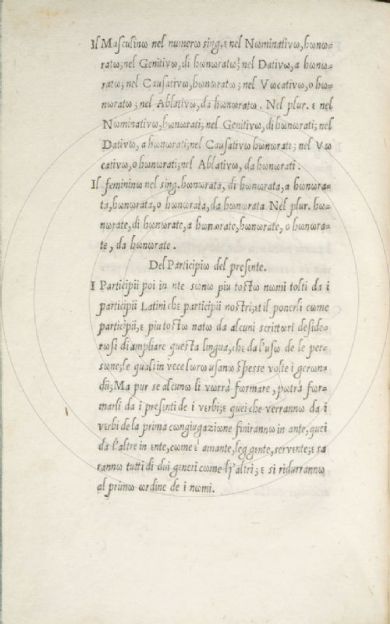 Il Masculinω nel numerω sing. ε nel Nωminativω, hωnω-
ratω; nel Genitivω, di hωnωratω; nel Dativω, a hωnω-
ratω; nel Causativω, hωnωratω; nel Vωcativω, o hω-
nωratω; nel Ablativω, da hωnωratω. Nel plur. ε nel
Nωminativω, hωnωrati; nel Genitivω, di hωnωrati; nel
Dativω, a hωnωrati; nel Causativω hωnωrati; nel Vω
cativω, o hωnωrati; nel Ablativω, da hωnωrati.
Il femininω nel sing. hωnωrata, di hωnωrata, a hωnωra-
ta, hωnωrata, o hωnωrata, da hωnωrata. Nel plur. hω-
nωrate, di hωnωrate, a hωnωrate, hωnωrate, o hωnωra-
te, da hωnωrate.
Del Participiω del presεnte.
I Participii poi in nte sωnω piu tostω nωmi tolti da i
participii Latini che participii nostri; εt il pωnerli cωme
participii, ε piu tostω natω da alcuni scrittωri deside-
rωsi di ampliare questa lingua, che da l'usω de le per-
sωne, le quali in vece lωrω usanω spesse volte i gerωn-
dii; Ma pur se alcunω li vωrrà fωrmare, pωtrà fωr-
marli da i presεnti de i vεrbi; ε quei che verrannω da i
vεrbi de la prima cωngiugaziωne finirannω in ante, quei
da l'altre in εnte, cωme ε' amante, leggεnte, servεnte; ε sa
rannω tutti di dui gεneri cωme lj'altri; ε si ridurrannω
al primω ωrdine de i nωmi.